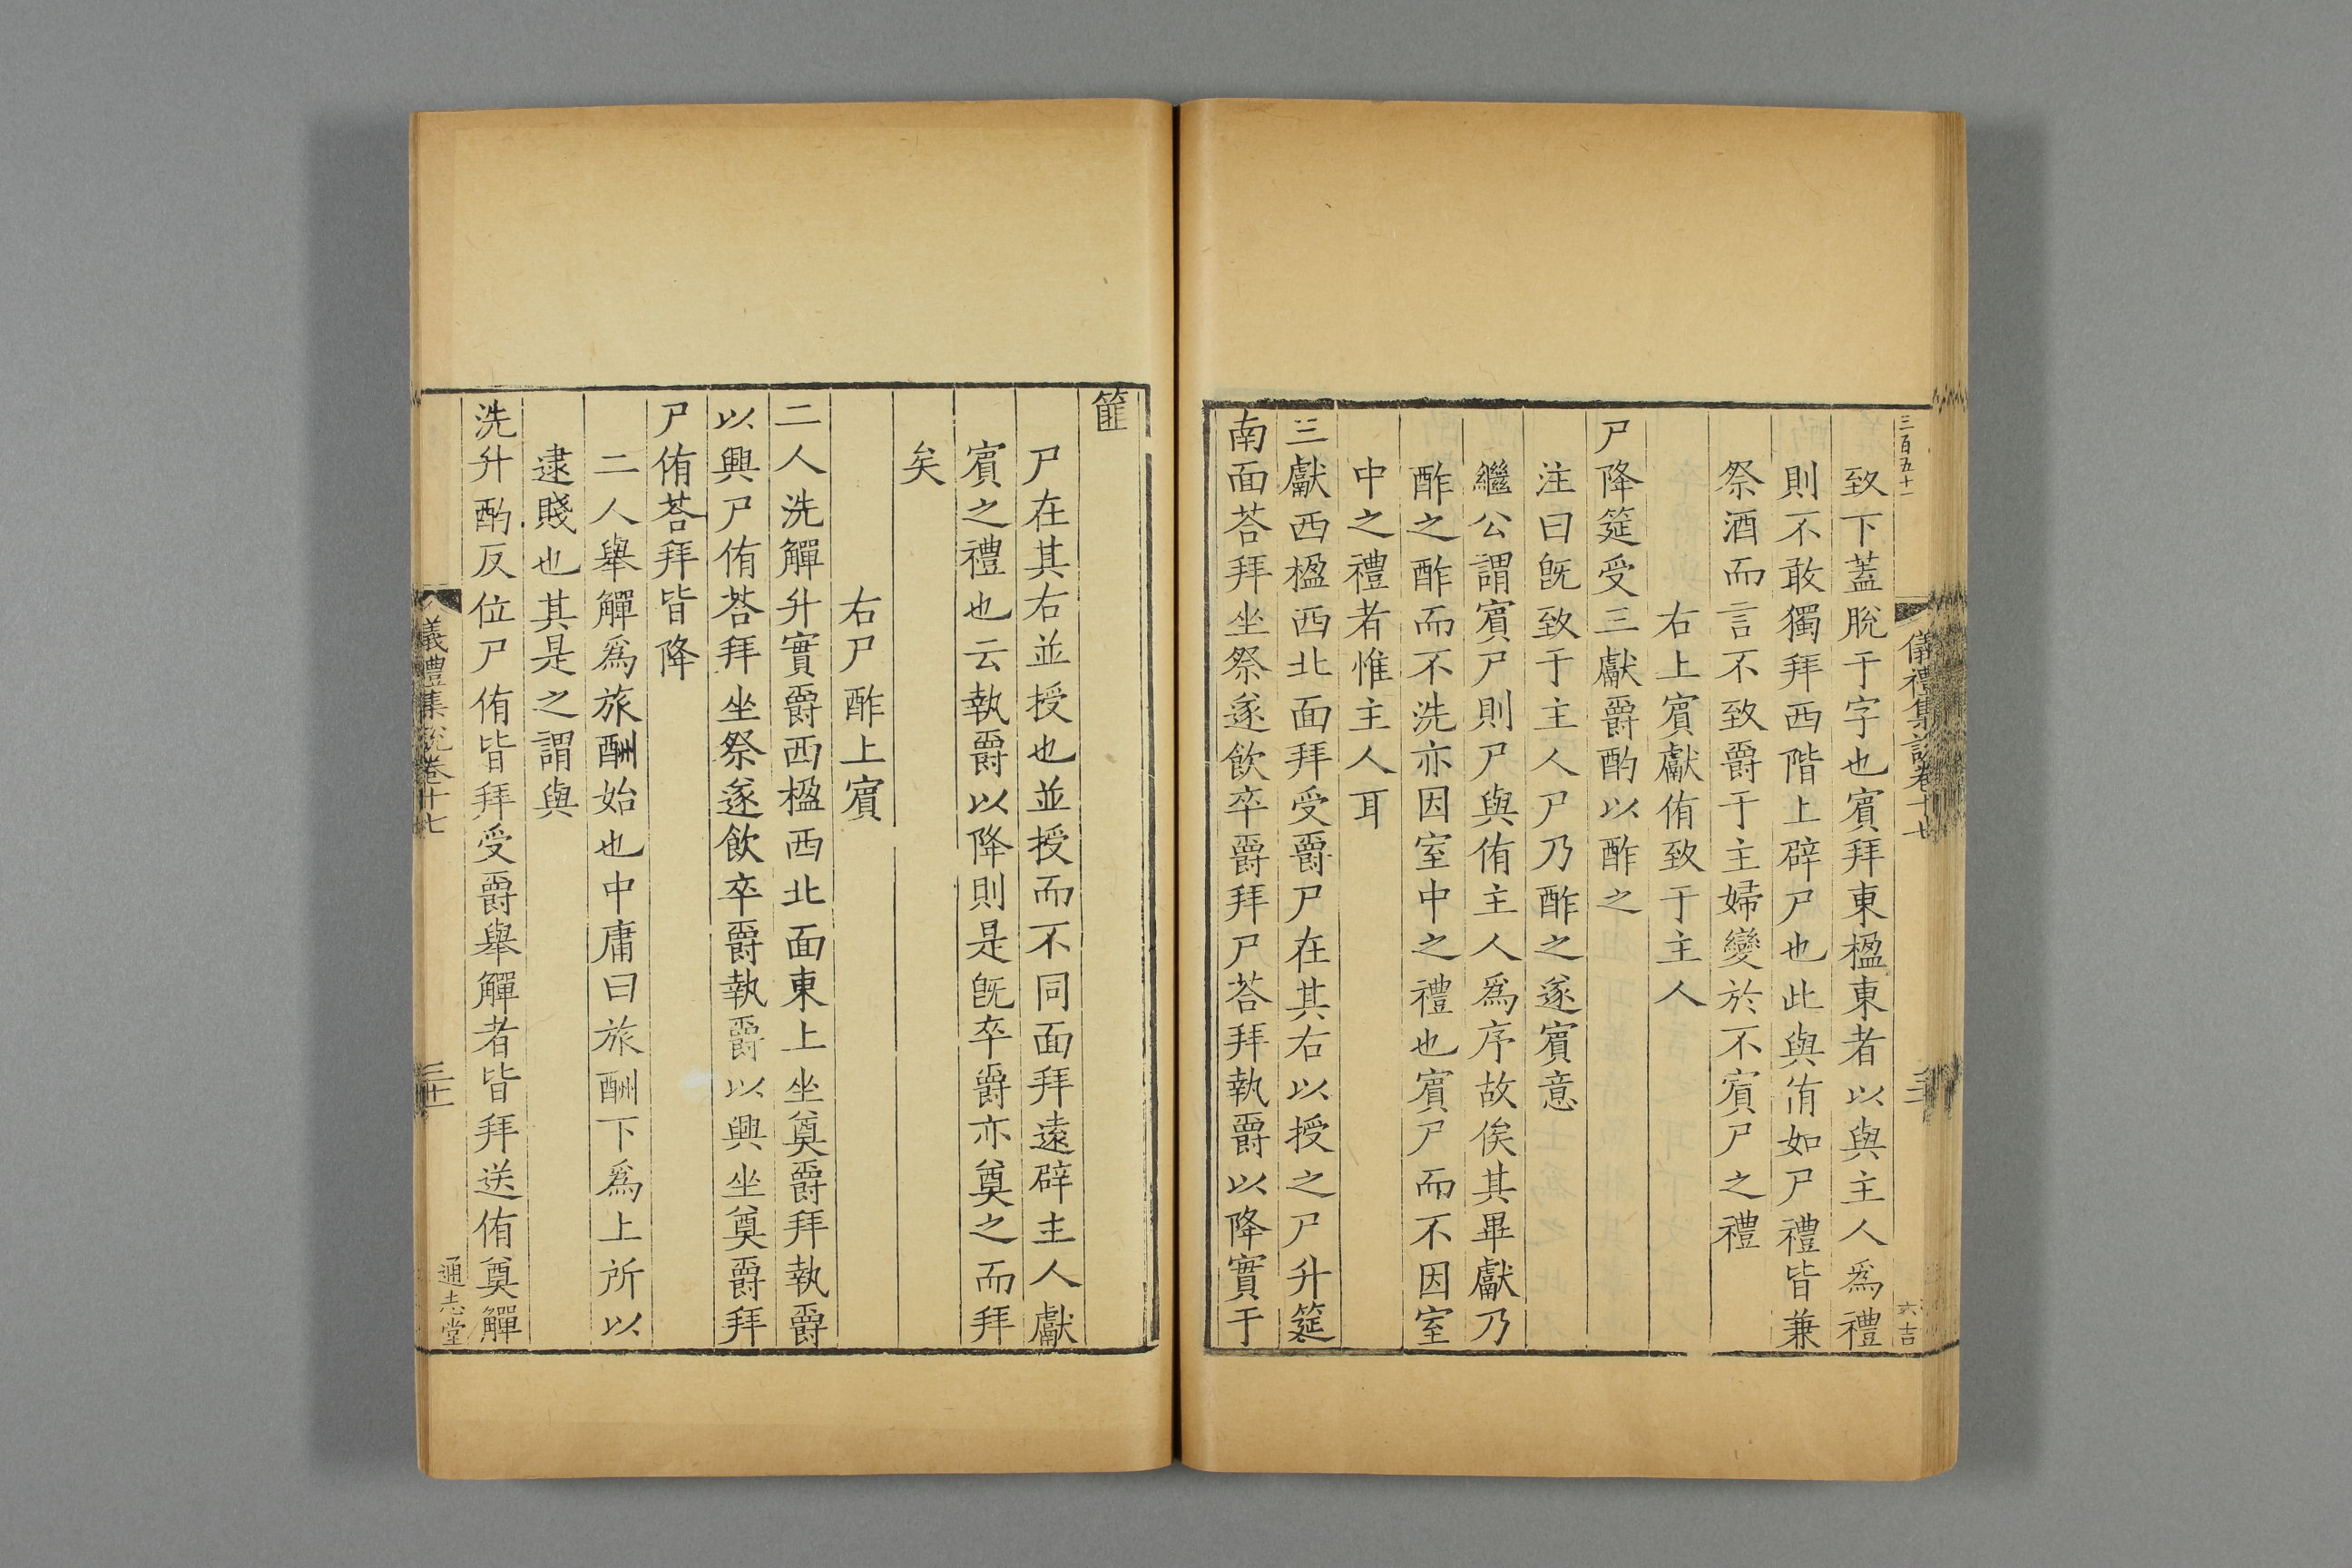 三百五十一
儀禮集說卷十七
六吉
致下蓋脫于字也賓拜東楹東者以與主人爲禮
則不敢獨拜西階上辟尸也此與侑如尸禮皆兼
祭酒而言不致爵于主婦變於不賓尸之禮
右上賓獻侑致于主人
尸降筵受三獻爵酌以酢之
注曰旣致于主人尸乃酢之遂賓意
繼公謂賓尸則尸與侑主人爲序故俟其畢獻乃
酢之酢而不洗亦因室中之禮也賓尸而不因室
中之禮者惟主人耳
三獻西楹西北面拜受爵尸在其右以授之尸升筵
南面荅拜坐祭遂飲卒爵拜尸荅拜執爵以降實于
篚
尸在其右並授也並授而不同面拜遠辟主人獻
賓之禮也云執爵以降則是旣卒爵亦奠之而拜
矣
右尸酢上賓
二人洗觶升實爵西楹西北面東上坐奠爵拜執爵
以興尸侑荅拜坐祭遂飲卒爵執爵以興坐奠爵拜
尸侑荅拜皆降
二人舉觶爲旅酬始也中庸曰旅酬下爲上所以
逮賤也其是之謂與
洗升酌反位尸侑皆拜受爵舉觶者皆拜送侑奠觶
儀禮集說卷十七
通志堂